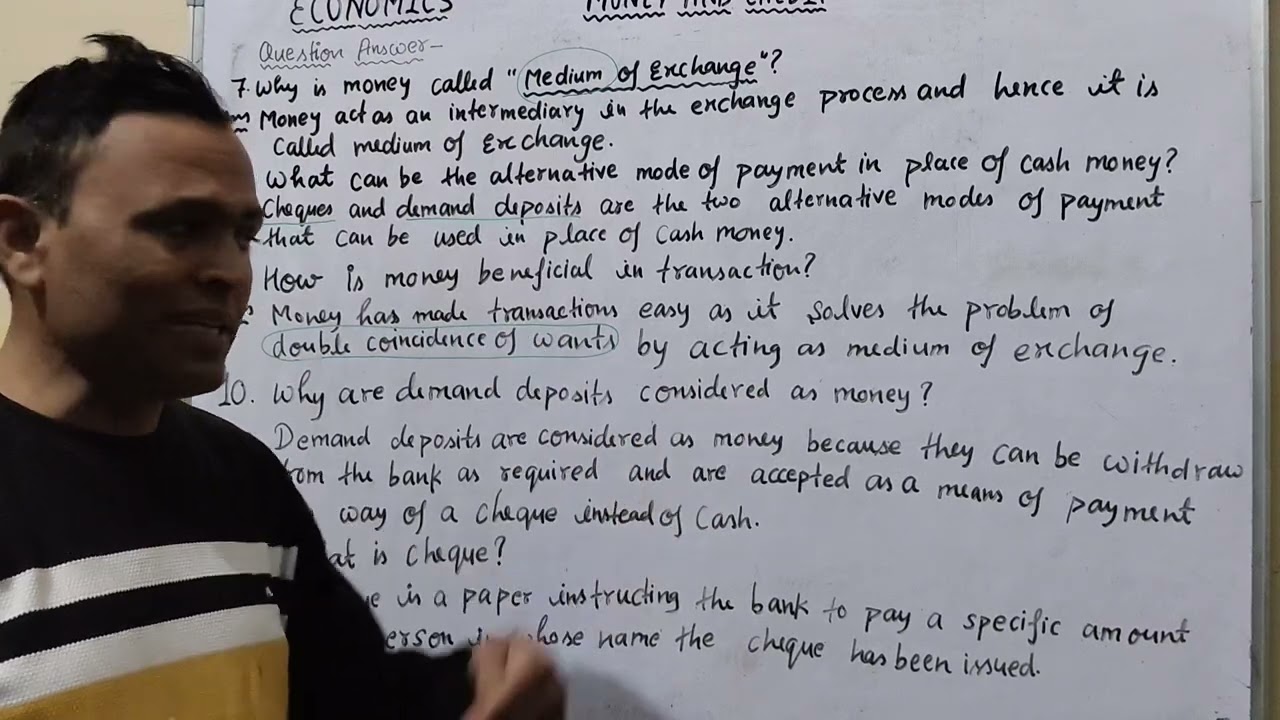 ECONOMICS MONEY AND CREDIT
Question Answer-
7. Why is money called "Medium of Exchange"?
Money act as an intermediary in the exchange process and hence it is
called medium of Exchange.
What can be the alternative mode of payment in place of cash money?
Cheques and demand deposits are the two alternative modes of payment
that can be used in place of cash money.
How is money beneficial in transaction?
Money has made transactions easy as it solves the problem of
double coincidence of wants by acting as medium of exchange.
10. Why are demand deposits considered as money?
Demand deposits are considered as money because they can be withdraw
the bank as required and are accepted as a means of payment
way of a cheque instead of cash.
is cheque?
is a paper instructing the bank to pay a specific amount
name the cheque has been issued.